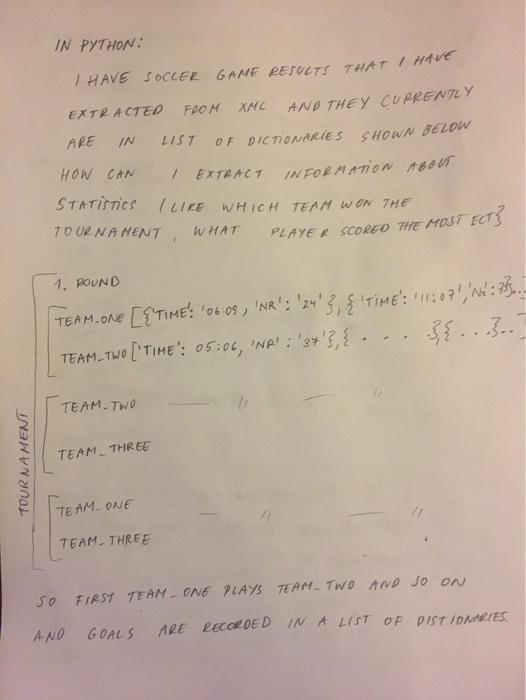 IN PYTHON:
I HAVE SOCCER GAME RESULTS THAT I HAVE
EXTRACTED FROM XML AND THEY CURRENTLY
ARE IN LIST OF DICTIONARIES SHOWN BELOW
HOW CAN I EXTRACT INFORMATION ABOUT
STATISTICS (LIKE WHICH TEAM WON THE
TOURNAMENT, WHAT PLAYER SCORED THE MOST ECT}
1. ROUND
TEAM_ONE [{TIME': '06:09, 'NR': '24'}, {'TIME': '11:07', 'NR': 7}, ...
TEAM_TWO ['TIME': 05:06, 'NR': '37'}, { . . . }, { . . . } ..]
TEAM_TWO — " — "
TEAM_THREE
TEAM_ONE — " — "
TEAM_THREE
TOURNAMENT
SO FIRST TEAM_ONE PLAYS TEAM_TWO AND SO ON
AND GOALS ARE RECORDED IN A LIST OF DISTIONARIES.